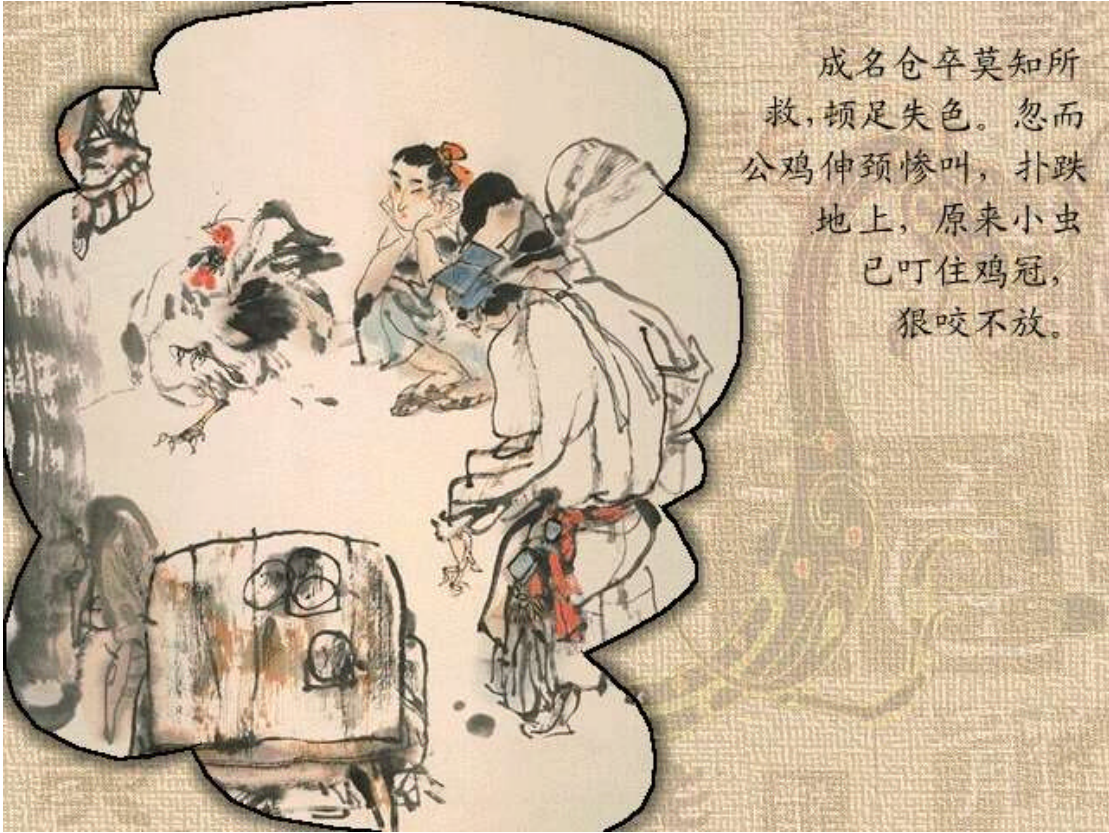 成名仓卒莫知所
救，顿足失色。忽而
公鸡伸颈惨叫，扑跌
地上，原来小虫
已叮住鸡冠，
狠咬不放。